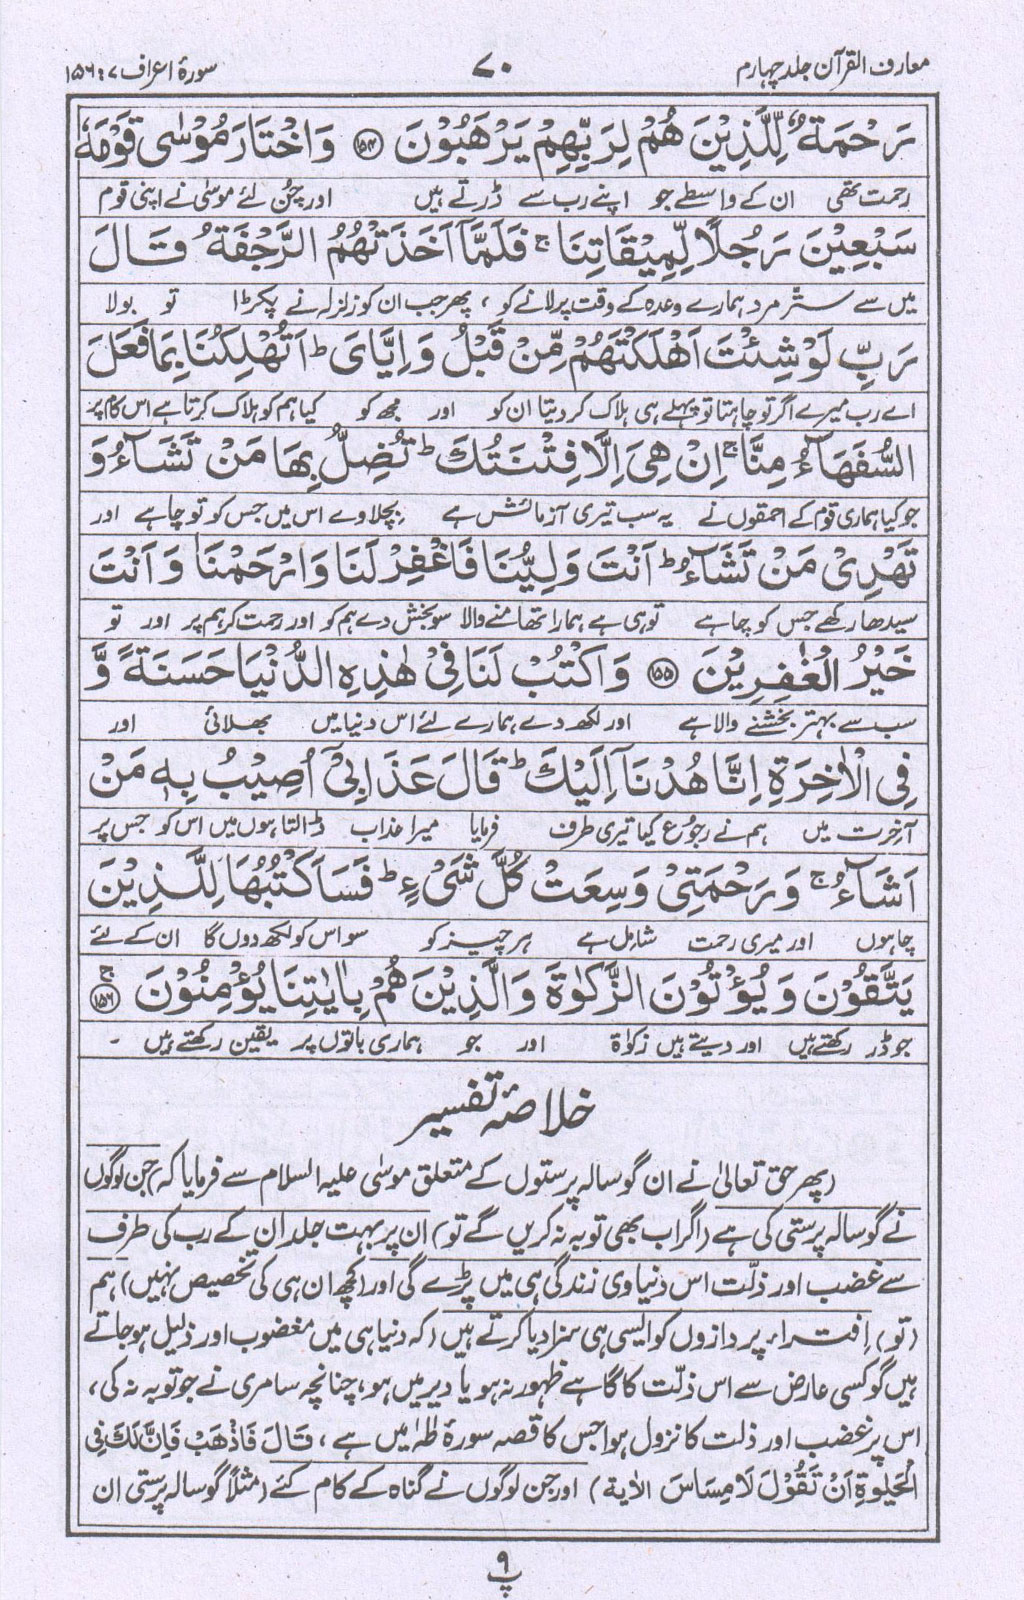 معارف القرآن جلد چہارم
۷۰
سورۂ اعراف ۷ : ۱۵۶
رَحْمَةٌ لِّلَّذِيْنَ هُمْ لِرَبِّهِمْ يَرْهَبُوْنَ ﴿۱۵۴﴾ وَاخْتَارَ مُوْسٰى قَوْمَهٗ
رحمت تھی ان کے واسطے جو اپنے رب سے ڈرتے ہیں اور چُن لئے موسیٰ نے اپنی قوم
سَبْعِيْنَ رَجُلًا لِّمِيْقَاتِنَا ۚ فَلَمَّآ اَخَذَتْهُمُ الرَّجْفَةُ قَالَ
میں سے ستّر مرد ہمارے وعدہ کے وقت پر لانے کو ، پھر جب ان کو زلزلہ نے پکڑا تو بولا
رَبِّ لَوْ شِئْتَ اَهْلَكْتَهُمْ مِّنْ قَبْلُ وَاِيَّاىَ ؕ اَتُهْلِكُنَا بِمَا فَعَلَ
اے رب میرے اگر تو چاہتا تو پہلے ہی ہلاک کر دیتا ان کو اور مجھ کو کیا ہم کو ہلاک کرتا ہے اس کام پر
السُّفَهَآءُ مِنَّا ۚ اِنْ هِىَ اِلَّا فِتْنَتُكَ ؕ تُضِلُّ بِهَا مَنْ تَشَآءُ وَ
جو کیا ہماری قوم کے احمقوں نے یہ سب تیری آزمائش ہے بچلاوے اس میں جس کو تو چاہے اور
تَهْدِىْ مَنْ تَشَآءُ ؕ اَنْتَ وَلِيُّنَا فَاغْفِرْ لَنَا وَارْحَمْنَا وَاَنْتَ
سیدھا رکھے جس کو چاہے تو ہی ہے ہمارا تھامنے والا سو بخش دے ہم کو اور رحمت کر ہم پر اور تو
خَيْرُ الْغٰفِرِيْنَ ﴿۱۵۵﴾ وَاكْتُبْ لَنَا فِىْ هٰذِهِ الدُّنْيَا حَسَنَةً وَّ
سب سے بہتر بخشنے والا ہے اور لکھ دے ہمارے لئے اس دنیا میں بھلائی اور
فِى الْاٰخِرَةِ اِنَّا هُدْنَآ اِلَيْكَ ؕ قَالَ عَذَابِىْٓ اُصِيْبُ بِهٖ مَنْ
آخرت میں ہم نے رجوع کیا تیری طرف فرمایا میرا عذاب ڈالتا ہوں میں اس کو جس پر
اَشَآءُ ۚ وَرَحْمَتِىْ وَسِعَتْ كُلَّ شَىْءٍ ؕ فَسَاَكْتُبُهَا لِلَّذِيْنَ
چاہوں اور میری رحمت شامل ہے ہر چیز کو سو اس کو لکھ دوں گا ان کے لئے
يَتَّقُوْنَ وَيُؤْتُوْنَ الزَّكٰوةَ وَالَّذِيْنَ هُمْ بِاٰيٰتِنَا يُؤْمِنُوْنَ ﴿۱۵۶﴾ ۚ
جو ڈر رکھتے ہیں اور دیتے ہیں زکوٰۃ اور جو ہماری باتوں پر یقین رکھتے ہیں ۔
خلاصۂ تفسیر
(پھر حق تعالیٰ نے ان گوسالہ پرستوں کے متعلق موسیٰ علیہ السلام سے فرمایا کہ) جن لوگوں
نے گوسالہ پرستی کی ہے (اگر اب بھی توبہ نہ کریں گے تو) ان پر بہت جلد ان کے رب کی طرف
سے غضب اور ذلّت اس دنیاوی زندگی ہی میں پڑے گی اور (کچھ ان ہی کی تخصیص نہیں) ہم
(تو) افتراء پردازوں کو ایسی ہی سزا دیا کرتے ہیں (کہ دنیا ہی میں مغضوب اور ذلیل ہو جاتے
ہیں گو کسی عارض سے اس ذلّت کا گاہے ظہور نہ ہو یا دیر میں ہو، چنانچہ سامری نے جو توبہ نہ کی،
اس پر غضب اور ذلت کا نزول ہوا جس کا قصہ سورۂ طٰہٰ میں ہے ، قَالَ فَاذْهَبْ فَاِنَّ لَكَ فِى
الْحَيٰوةِ اَنْ تَقُوْلَ لَا مِسَاسَ الاٰیة) اور جن لوگوں نے گناہ کے کام کئے (مثلاً گوسالہ پرستی ان
پ ۹